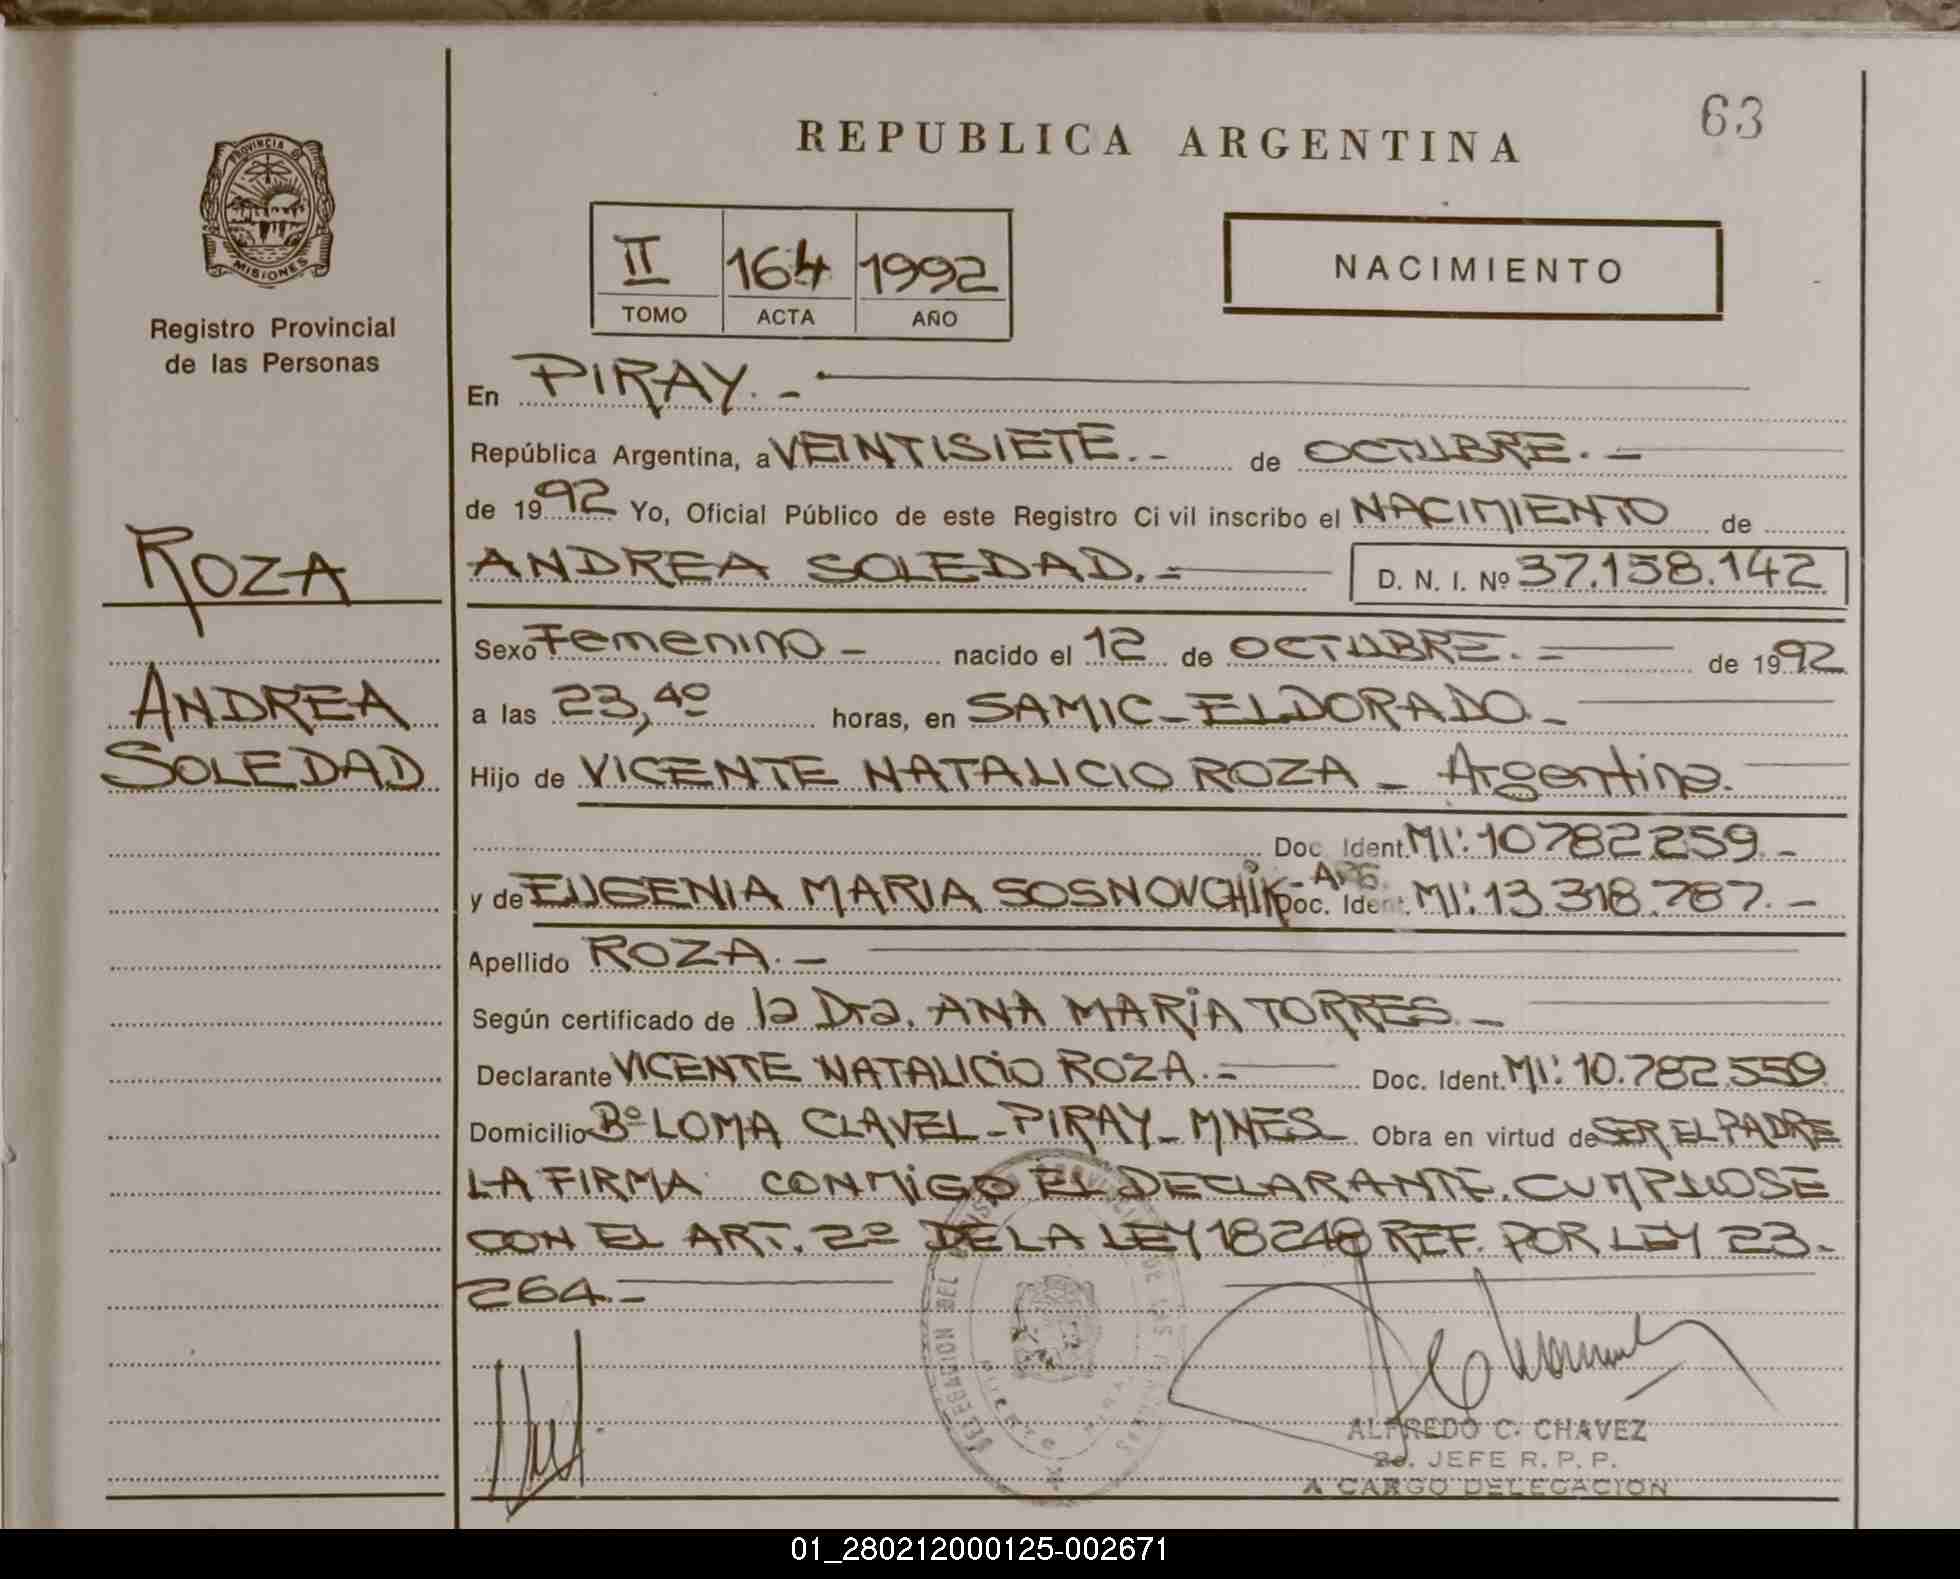 63
REPUBLICA ARGENTINA
PROVINCIA DE
MISIONES
Registro Provincial
de las Personas
II 164 1992
TOMO ACTA AÑO
NACIMIENTO
En PIRAY.-
República Argentina, a VEINTISIETE.- de OCTUBRE.-
de 1992 Yo, Oficial Público de este Registro Ci vil inscribo el NACIMIENTO de
ROZA
ANDREA SOLEDAD.= D. N. I. Nº 37.158.142
Sexo Femenino - nacido el 12 de OCTUBRE.= de 1992
ANDREA
SOLEDAD
a las 23,40 horas, en SAMIC-ELDORADO-
Hijo de VICENTE NATALICIO ROZA - Argentino.
Doc. Ident. MI: 10782259.-
y de EUGENIA MARIA SOSNOVCHIK-ARG. Doc. Ident. MI: 13.318.787.-
Apellido ROZA.-
Según certificado de la Dra. ANA MARIA TORRES.-
Declarante VICENTE NATALICIO ROZA.= Doc. Ident. MI: 10.782.559.
Domicilio Bº LOMA CLAVEL-PIRAY-MNES- Obra en virtud de SER EL PADRE
LA FIRMA CONMIGO EL DECLARANTE. CUMPLIOSE
CON EL ART. 2º DE LA LEY 18248 REF. POR LEY 23.
264.-
DELEGACION DEL REGISTRO PROVINCIAL DE LAS PERSONAS
ALFREDO C. CHAVEZ
2o. JEFE R. P. P.
A CARGO DELEGACION
01_280212000125-002671